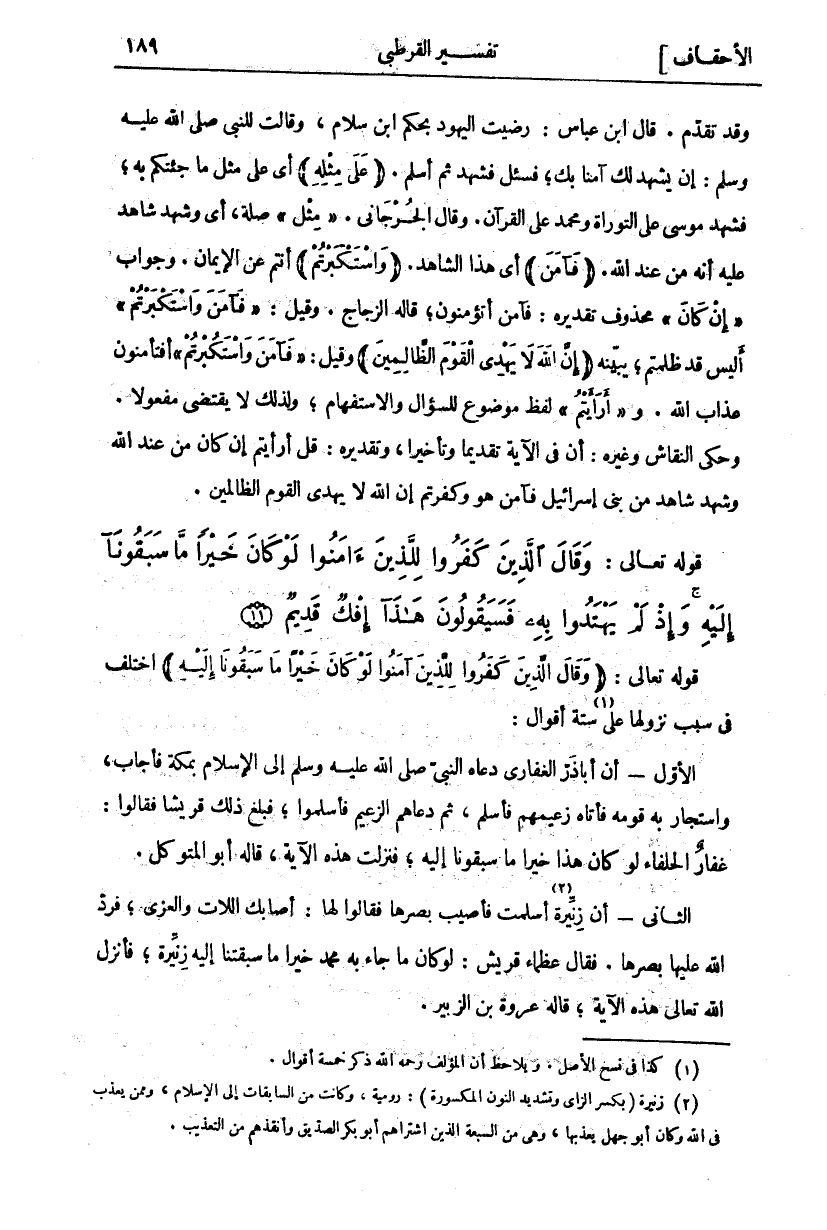 الأحقاف ] تفسير القرطبى ١٨٩
وقد تقدّم . قال ابن عباس : رضيت اليهود بحكم ابن سلام ، وقالت للنبى صلى الله عليه
وسلم : إن يشهد لك آمنا بك ؛ فسئل فشهد ثم أسلم . ﴿ عَلَى مِثْلِهِ ﴾ أى على مثل ما جئتكم به ؛
فشهد موسى على التوراة ومحمد على القرآن . وقال الجُرْجانى . « مِثْل » صلة ، أى وشهد شاهد
عليه أنه من عند الله . ﴿ فَآمَنَ ﴾ أى هذا الشاهد . ﴿ وَاسْتَكْبَرْتُمْ ﴾ أنتم عن الإيمان . وجواب
« إِنْ كَانَ » محذوف تقديره : فآمن أتؤمنون ؛ قاله الزجاج . وقيل : « فَآمَنَ وَاسْتَكْبَرْتُمْ »
أليس قد ظلمتم ؛ يبيّنه ﴿ إِنَّ اللهَ لَا يَهْدِى الْقَوْمَ الظَّالِمِينَ ﴾ وقيل : « فَآمَنَ وَاسْتَكْبَرْتُمْ » أفتأمنون
عذاب الله . و « أَرَأَيْتُمْ » لفظ موضوع للسؤال والاستفهام ؛ ولذلك لا يقتضى مفعولا .
وحكى النقاش وغيره : أن فى الآية تقديما وتأخيرا ، وتقديره : قل أرأيتم إن كان من عند الله
وشهد شاهد من بنى إسرائيل فآمن هو وكفرتم إن الله لا يهدى القوم الظالمين .
قوله تعالى : وَقَالَ ٱلَّذِينَ كَفَرُوا لِلَّذِينَ ءَامَنُوا لَوْ كَانَ خَيْرًا مَّا سَبَقُونَآ
إِلَيْهِ ۚ وَإِذْ لَمْ يَهْتَدُوا بِهِۦ فَسَيَقُولُونَ هَـٰذَآ إِفْكٌ قَدِيمٌ ﴿١١﴾
قوله تعالى : ﴿ وَقَالَ الَّذِينَ كَفَرُوا لِلَّذِينَ آمَنُوا لَوْ كَانَ خَيْرًا مَا سَبَقُونَا إِلَيْهِ ﴾ اختلف
فى سبب نزولها على (١) ستة أقوال :
الأوّل — أن أباذَرّ الغفارى دعاه النبىّ صلى الله عليه وسلم إلى الإسلام بمكة فأجاب ،
واستجار به قومه فأتاه زعيمهم فأسلم ، ثم دعاهم الزعيم فأسلموا ؛ فبلغ ذلك قريشا فقالوا :
غِفارٌ الحلفاء لو كان هذا خيرا ما سبقونا إليه ؛ فنزلت هذه الآية ، قاله أبو المتوكل .
الثانى — أن زِنِّيرة (٢) أسلمت فأصيب بصرها فقالوا لها : أصابك اللات والعزى ؛ فردّ
الله عليها بصرها . فقال عظماء قريش : لو كان ما جاء به محمد خيرا ما سبقتنا إليه زِنِّيرة ؛ فأنزل
الله تعالى هذه الآية ؛ قاله عروة بن الزبير .
(١) كذا فى نسخ الأصل ، ويلاحظ أن المؤلف رحمه الله ذكر خمسة أقوال .
(٢) زنيرة ( بكسر الزاى وتشديد النون المكسورة ) : رومية ، وكانت من السابقات إلى الإسلام ، وممن يعذب
فى الله وكان أبو جهل يعذبها ، وهى من السبعة الذين اشتراهم أبو بكر الصديق وأنقذهم من التعذيب .